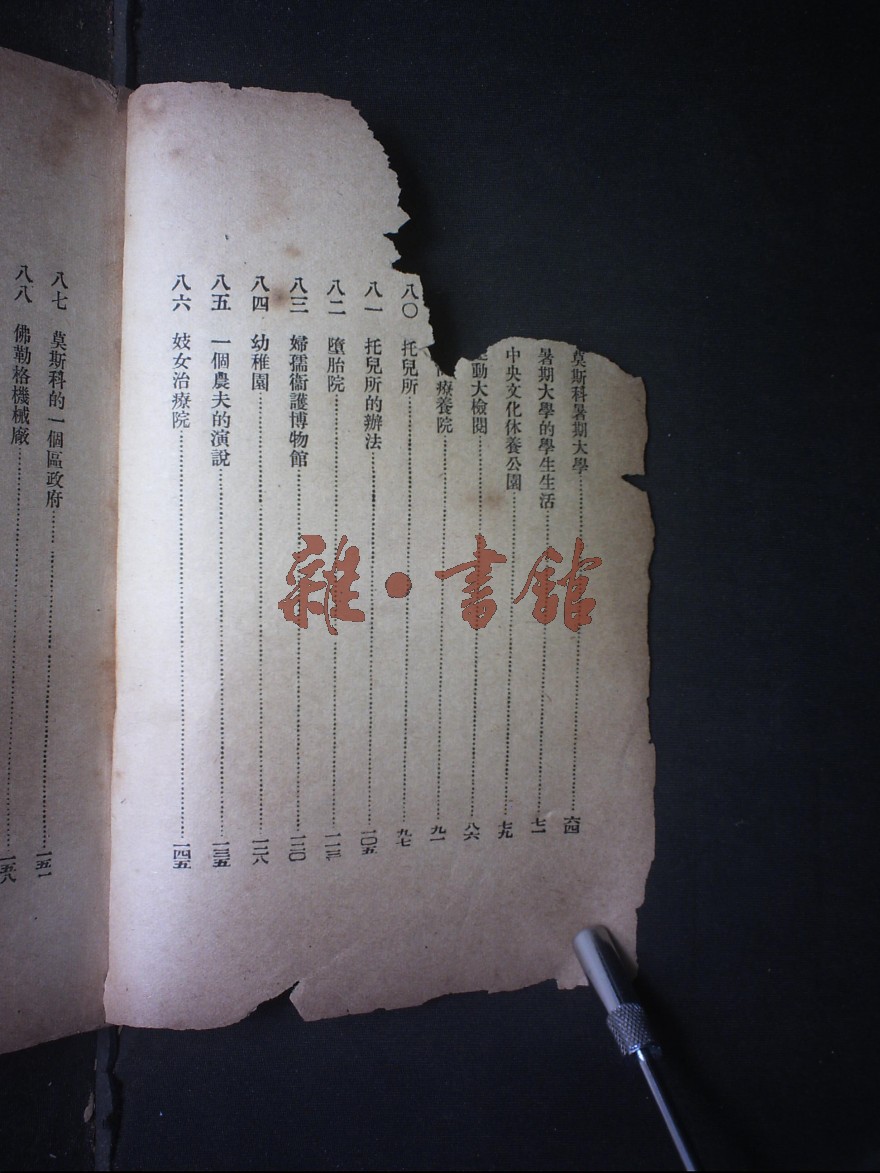 莫斯科暑期大學……六四
暑期大學的學生生活……七一
中央文化休養公園……七九
動大檢閱……八六
療養院……九一
八〇 托兒所……九七
八一 托兒所的辦法……一〇五
八二 墮胎院……一一三
八三 婦孺衞護博物館……一二〇
八四 幼稚園……一二八
八五 一個農夫的演說……一三五
八六 妓女治療院……一四五
八七 莫斯科的一個區政府……一五一
八八 佛勒格機械廠……一五八
雜·書館